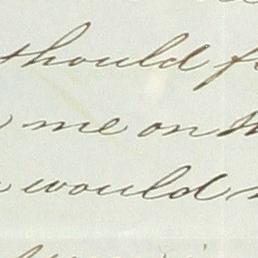 should
me on
would